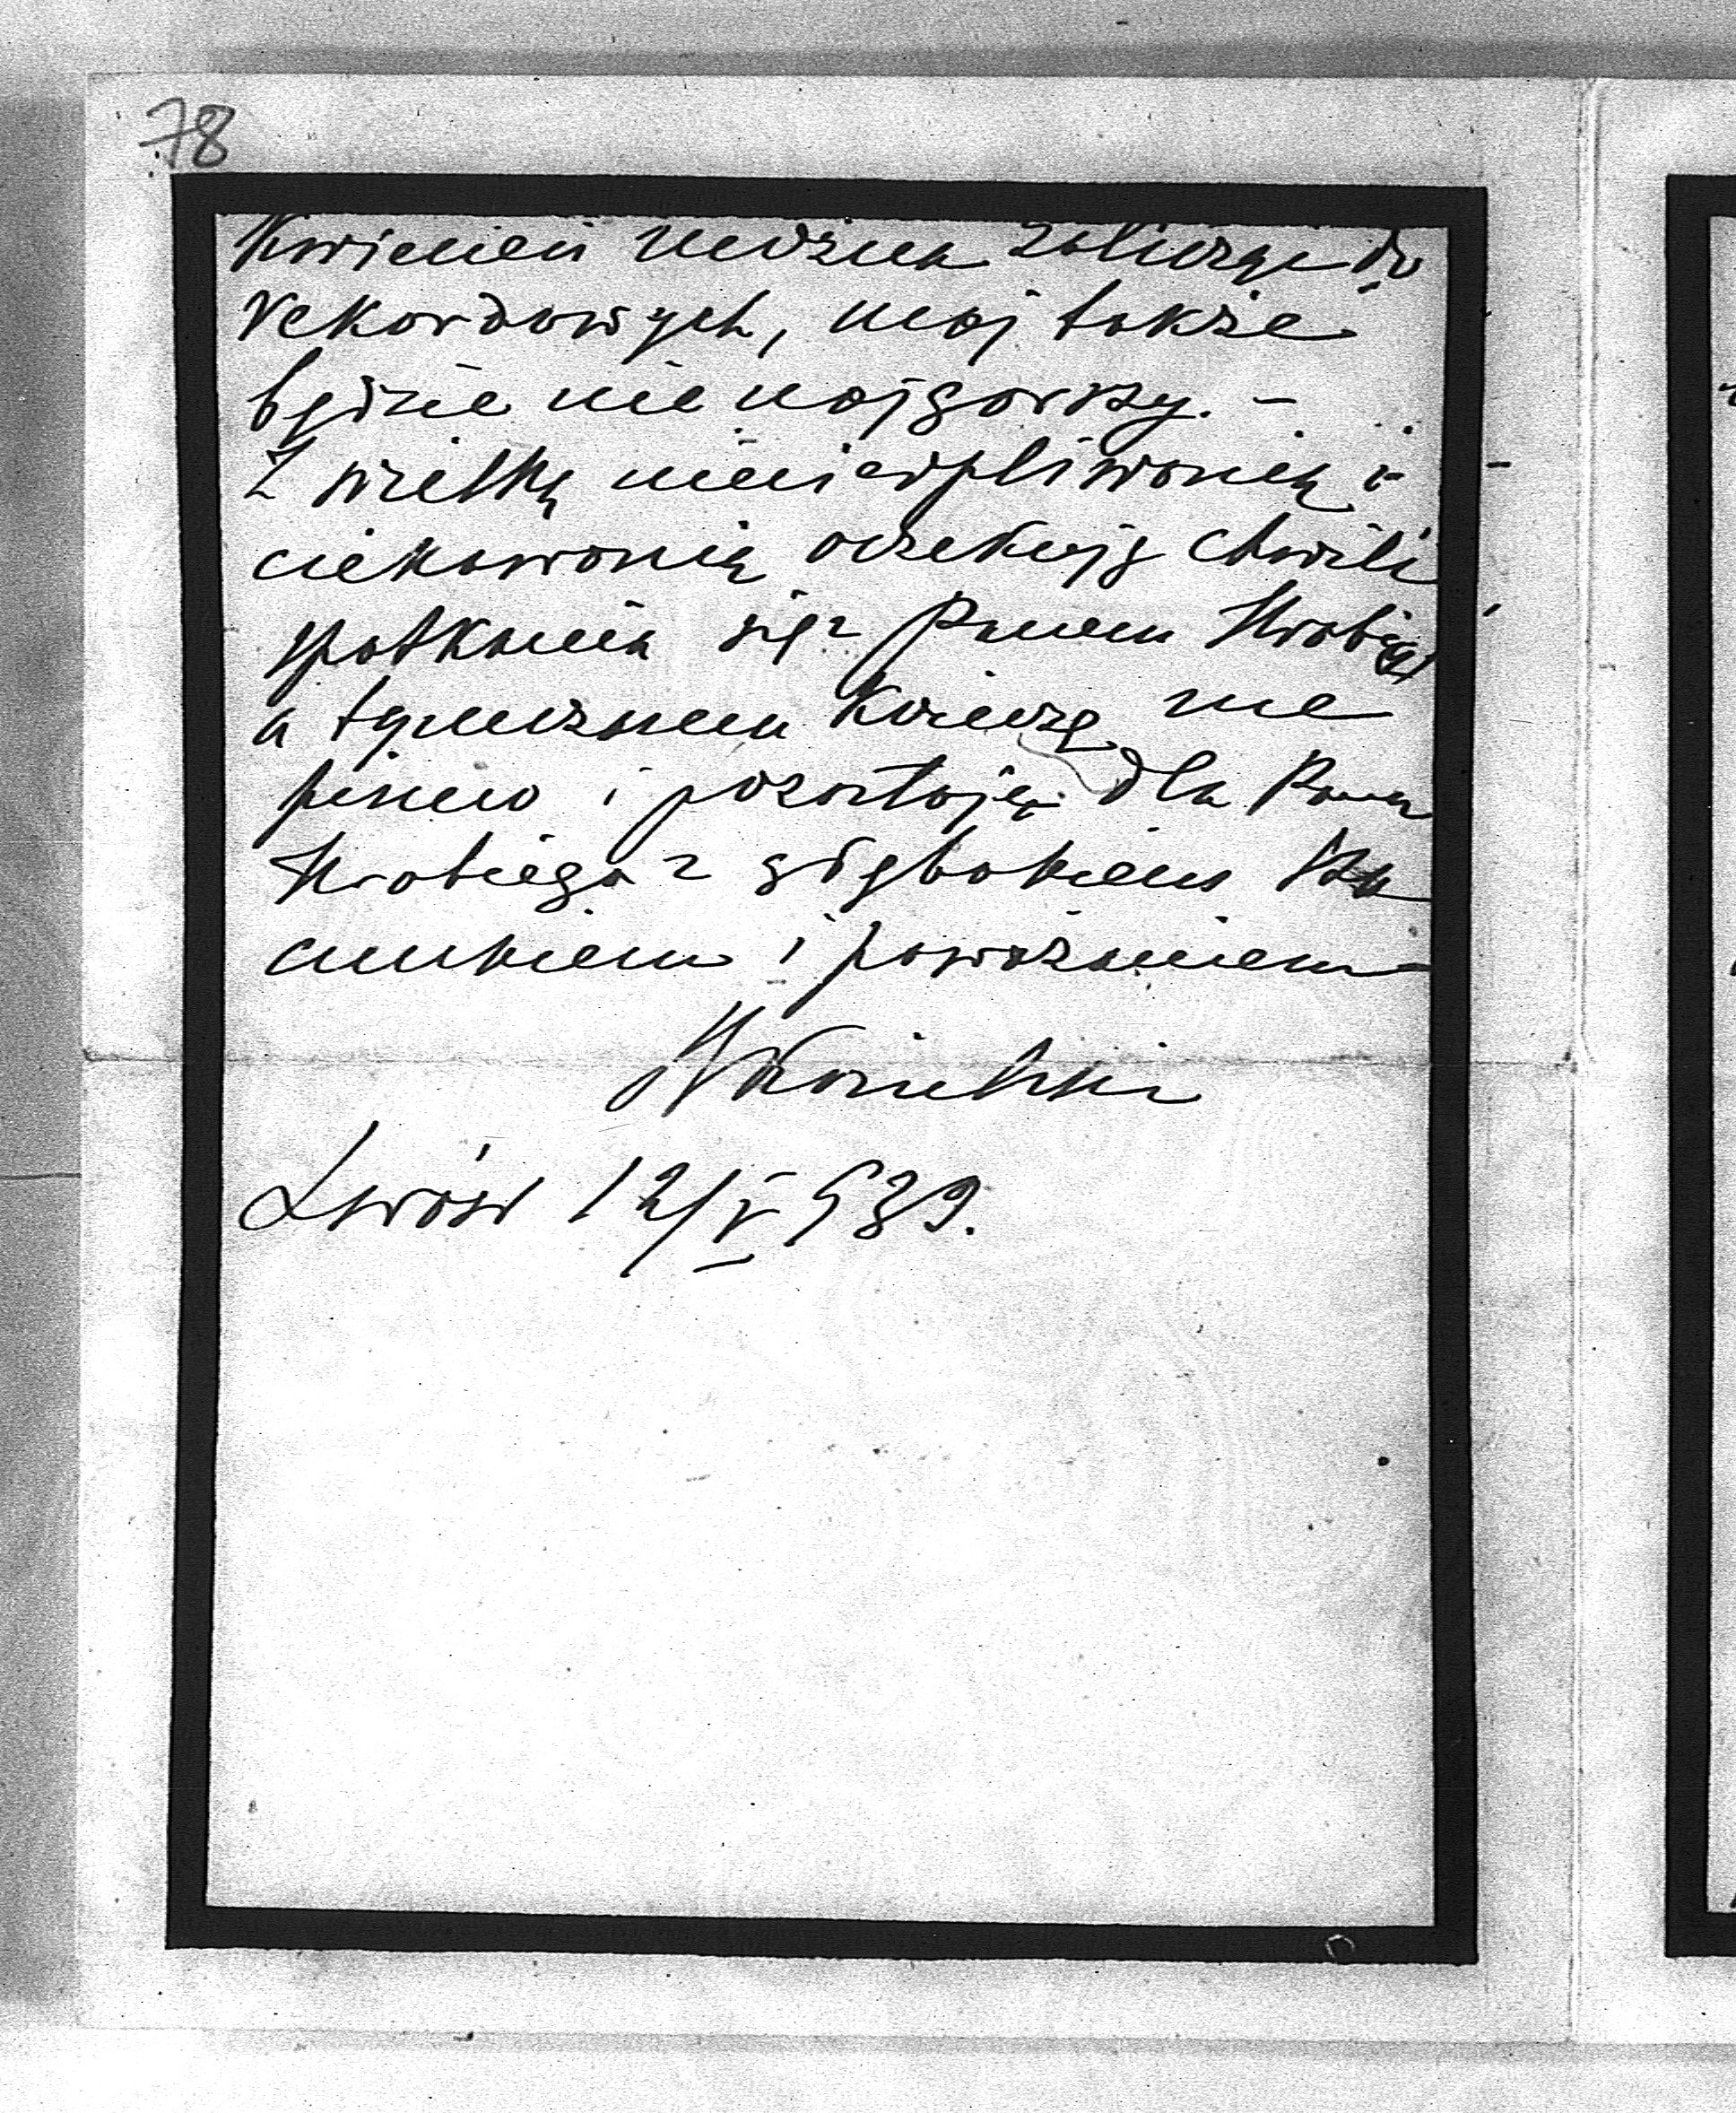 78
Kwiecień można zaliczyć do
rekordowych, maj także
będzie nie najgorszy. –
Z wielką niecierpliwością i
ciekawością oczekuję chwili
spotkania się z Panem Hrabią,
a tymczasem kończę me
pismo i pozostaję dla Pana
Hrabiego z głębokiem sza
cunkiem i poważaniem
Lwów 12/V 939.